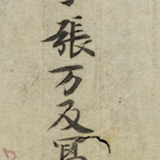 張万及寫